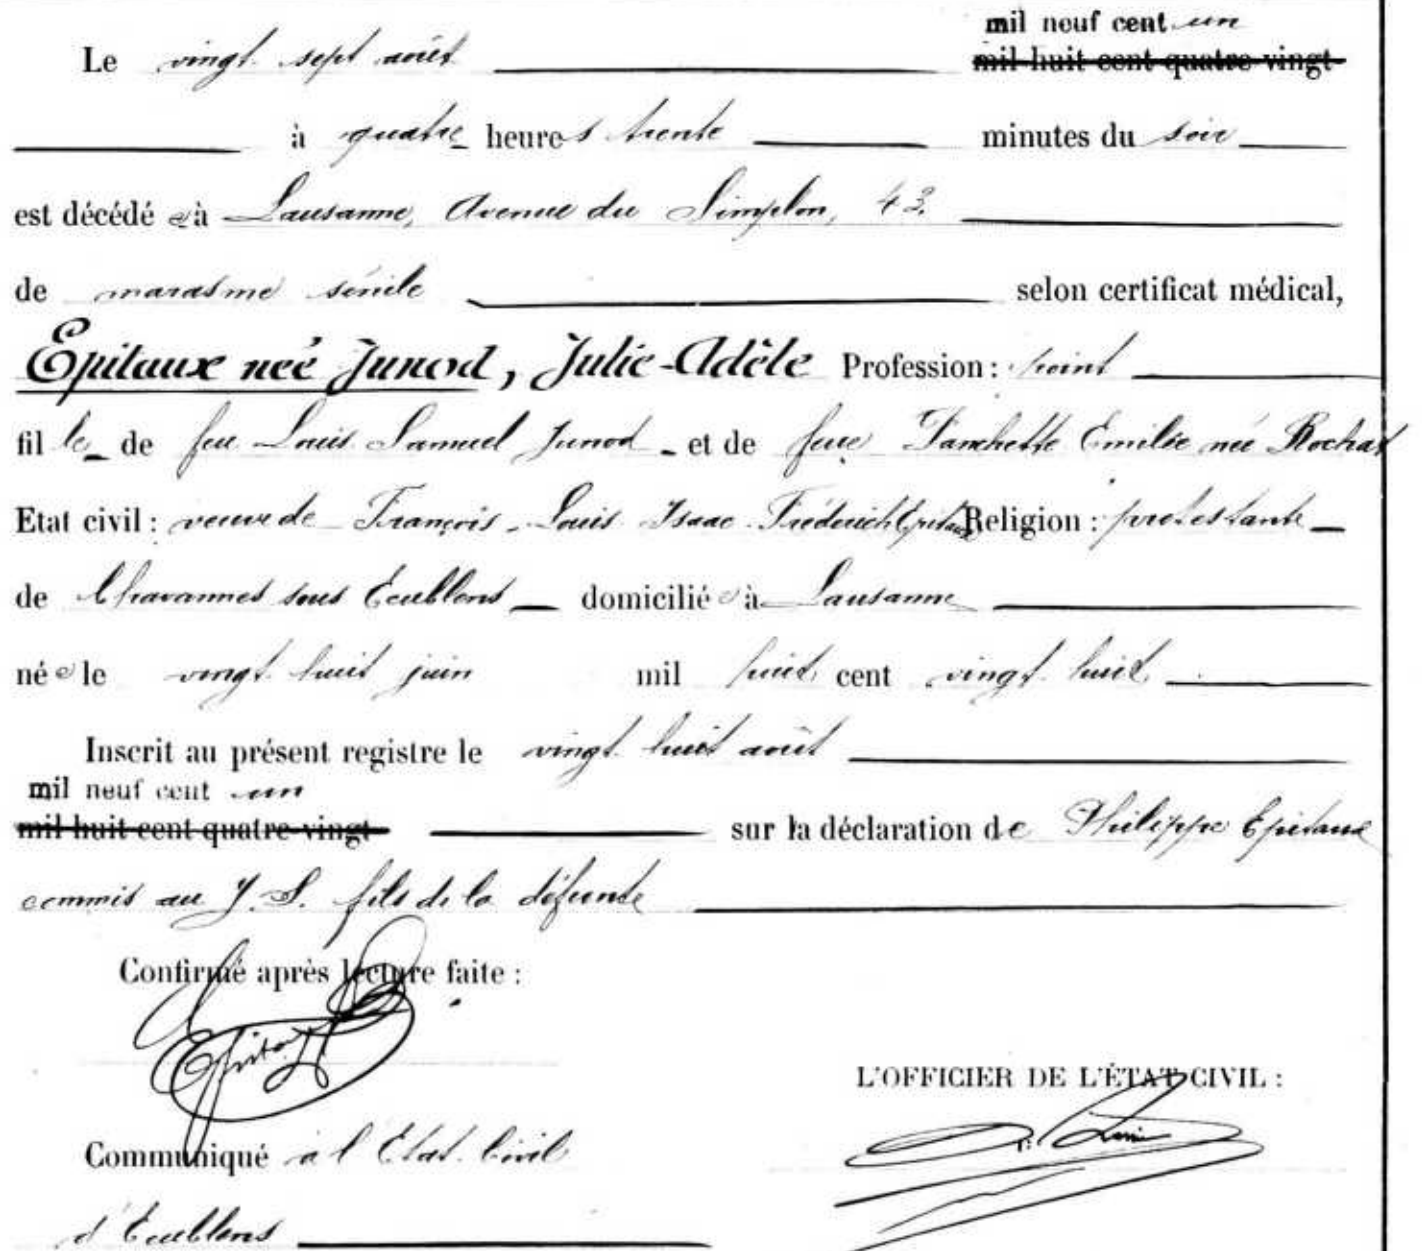 mil neuf cent un
Le vingt sept août mil huit cent quatre-vingt
à quatre heures trente minutes du soir
est décédée à Lausanne, Avenue du Simplon, 43.
de marasme sénile selon certificat médical,
Epitaux neé Junod, Julie-Adèle Profession: point
fille de feu Louis Samuel Junod et de feue Fanchette Emilie née Rochat
Etat civil: veuve de François Louis Isaac Frédérich Epitaux Religion: protestante
de Chavannes sous Ecublens domiciliée à Lausanne
née le vingt huit juin mil huit cent vingt huit
Inscrit au présent registre le vingt huit août
mil neuf cent un
mil huit cent quatre-vingt sur la déclaration de Philippe Epitaux
commis au J. S. fils de la défunte
Confirmé après lecture faite:
Epitaux
L'OFFICIER DE L'ÉTAT CIVIL:
Communiqué à l'Etat Civil
d'Ecublens